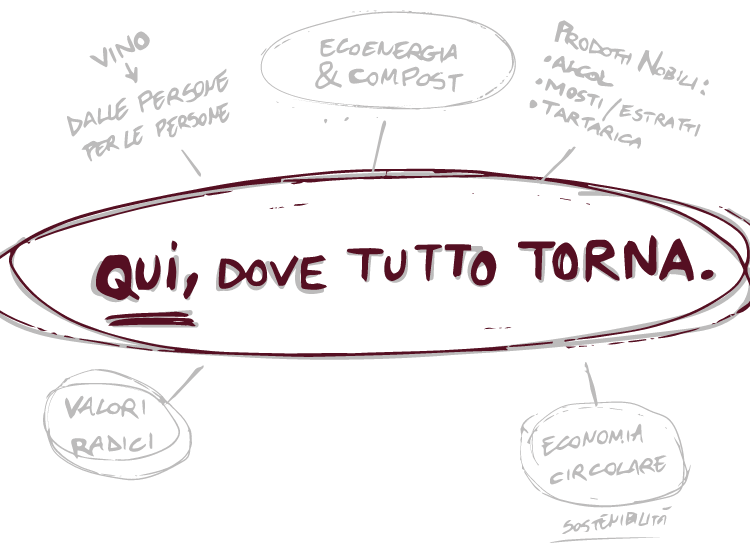 VINO
DALLE PERSONE
PER LE PERSONE
ECOENERGIA
& COMPOST
PRODOTTI NOBILI:
• ALCOL
• MOSTI/ESTRATTI
• TARTARICA
QUI, DOVE TUTTO TORNA.
VALORI
RADICI
ECONOMIA
CIRCOLARE
SOSTENIBILITÀ